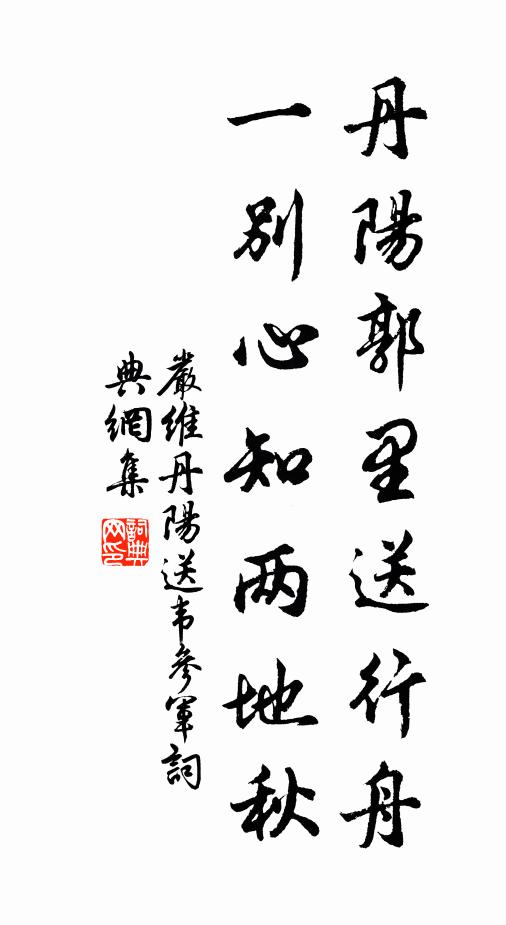 丹陽郭里送行舟
一别心知两地秋
嚴維丹陽送韦參軍詞
典網集
詞典
网印